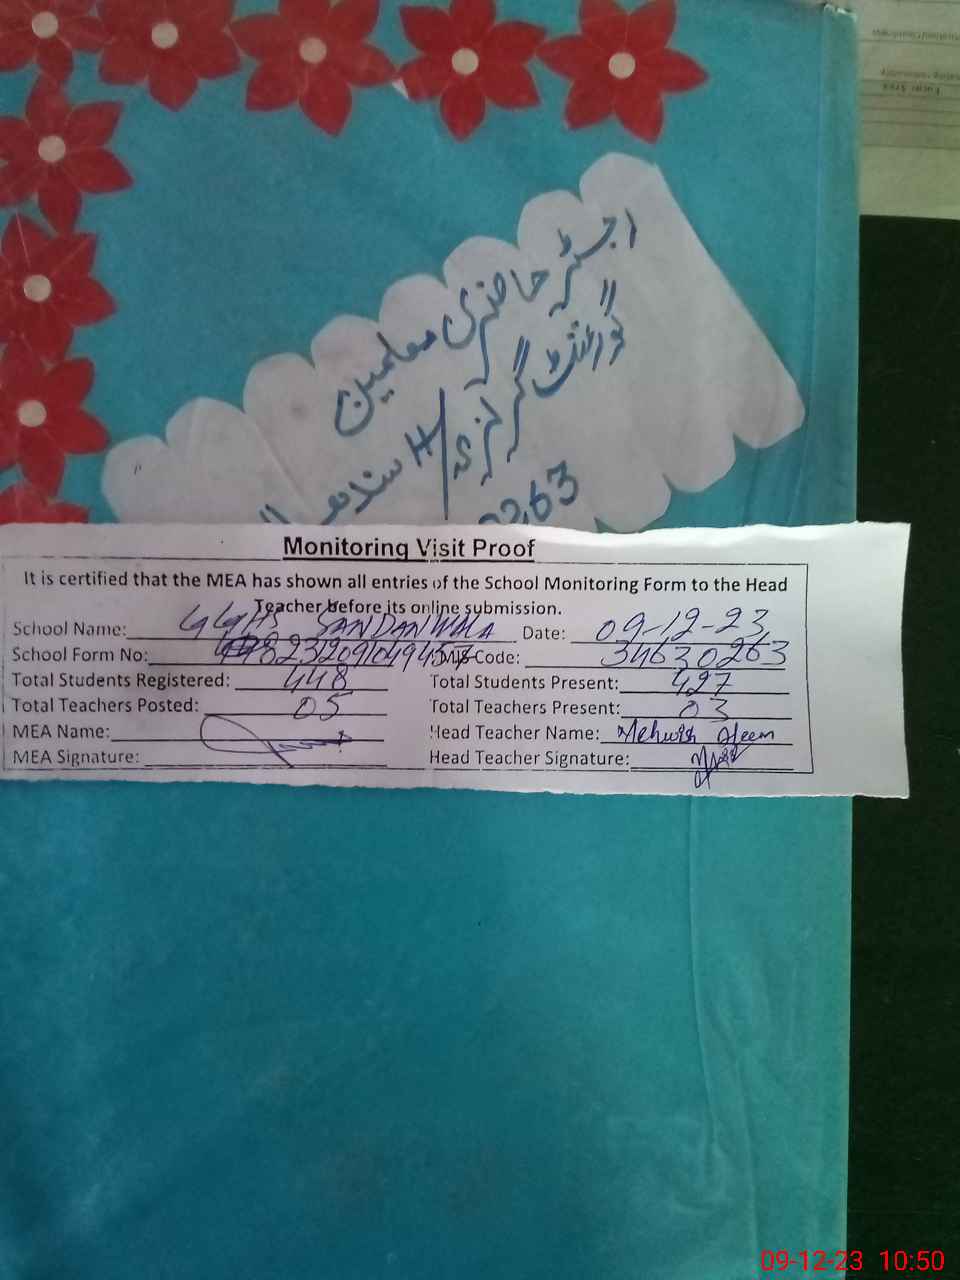 رجسٹر حاضری معلمین
گورنمنٹ گرلز
H / سندھ
263
Monitoring Visit Proof
It is certified that the MEA has shown all entries of the School Monitoring Form to the Head
Teacher before its online submission.
School Name: GGHS SANDANWALA Date: 09-12-23
School Form No: Code: 34630263
Total Students Registered: 448 Total Students Present: 427
Total Teachers Posted: 05 Total Teachers Present: 03
MEA Name: Head Teacher Name: Mehwish Aleem
MEA Signature: Head Teacher Signature:
09-12-23 10:50